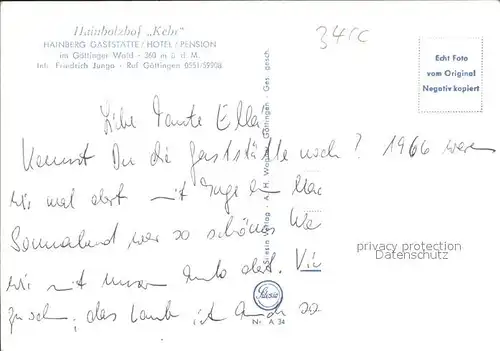 Hainholzhof „Kehr"
HAINBERG GASTSTÄTTE / HOTEL / PENSION
im Göttinger Wald - 360 m ü. d. M.
Inh. Friedrich Junge - Ruf Göttingen 0551/59208
34CC
Echt Foto
vom Original
Negativ kopiert
Liebe Tante Ella!
Kennst Du die Gaststätte noch? 1966 waren
wir mal dort mit Inge
Sonnabend war so schönes We
wir mit unserm Auto dort. Vi
das Laub ist
Stesin Verlag - A. H. Göttingen - Ges. gesch.
Stesin
Nr. A 34
privacy protection
Datenschutz